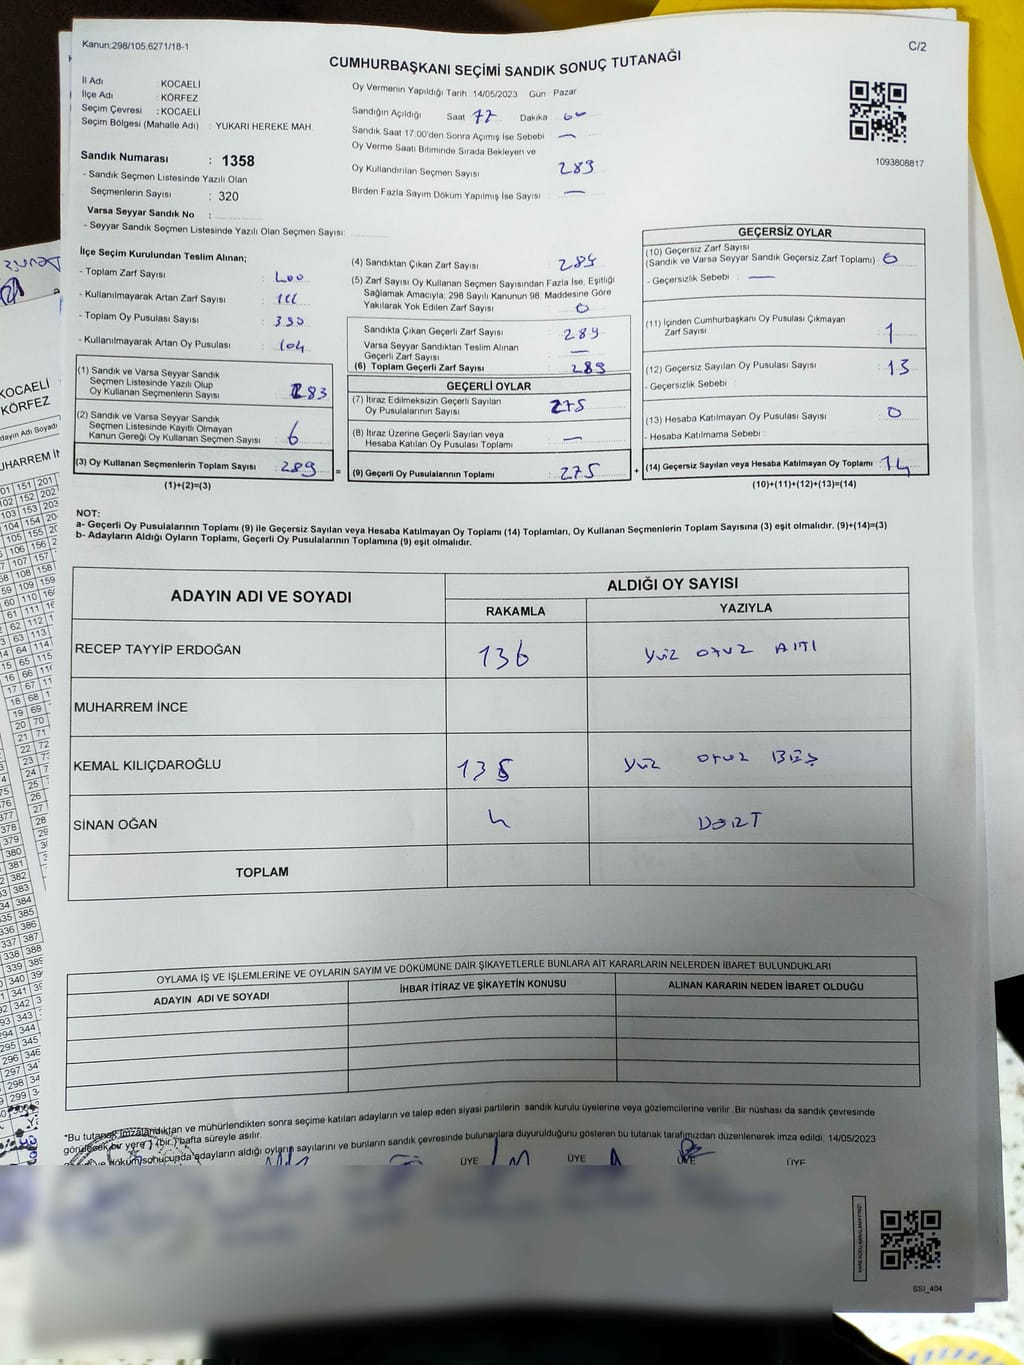 Kanun;298/105,6271/18-1
C/2
CUMHURBAŞKANI SEÇİMİ SANDIK SONUÇ TUTANAĞI
İl Adı : KOCAELİ
İlçe Adı : KÖRFEZ
Seçim Çevresi : KOCAELİ
Seçim Bölgesi (Mahalle Adı) : YUKARI HEREKE MAH.
Sandık Numarası : 1358
- Sandık Seçmen Listesinde Yazılı Olan
Seçmenlerin Sayısı : 320
Varsa Seyyar Sandık No :
- Seyyar Sandık Seçmen Listesinde Yazılı Olan Seçmen Sayısı:
Oy Vermenin Yapıldığı Tarih : 14/05/2023 Gün Pazar
Sandığın Açıldığı Saat 17 Dakika 00
Sandık Saat 17:00'den Sonra Açımış İse Sebebi : —
Oy Verme Saati Bitiminde Sırada Bekleyen ve
Oy Kullandırılan Seçmen Sayısı : 289
Birden Fazla Sayım Döküm Yapılmış İse Sayısı : —
1093808817
İlçe Seçim Kurulundan Teslim Alınan;
- Toplam Zarf Sayısı : 400
- Kullanılmayarak Artan Zarf Sayısı : 111
- Toplam Oy Pusulası Sayısı : 390
- Kullanılmayarak Artan Oy Pusulası : 104
(1) Sandık ve Varsa Seyyar Sandık
Seçmen Listesinde Yazılı Olup
Oy Kullanan Seçmenlerin Sayısı : 283
(2) Sandık ve Varsa Seyyar Sandık
Seçmen Listesinde Kayıtlı Olmayan
Kanun Gereği Oy Kullanan Seçmen Sayısı : 6
(3) Oy Kullanan Seçmenlerin Toplam Sayısı : 289 =
(1)+(2)=(3)
(4) Sandıktan Çıkan Zarf Sayısı : 289
(5) Zarf Sayısı Oy Kullanan Seçmen Sayısından Fazla İse, Eşitliği
Sağlamak Amacıyla; 298 Sayılı Kanunun 98. Maddesine Göre
Yakılarak Yok Edilen Zarf Sayısı : 0
Sandıkta Çıkan Geçerli Zarf Sayısı : 289
Varsa Seyyar Sandıktan Teslim Alınan
Geçerli Zarf Sayısı : —
(6) Toplam Geçerli Zarf Sayısı : 289
GEÇERLİ OYLAR
(7) İtiraz Edilmeksizin Geçerli Sayılan
Oy Pusulalarının Sayısı : 275
(8) İtiraz Üzerine Geçerli Sayılan veya
Hesaba Katılan Oy Pusulası Toplamı : —
(9) Geçerli Oy Pusulalarının Toplamı : 275 +
GEÇERSİZ OYLAR
(10) Geçersiz Zarf Sayısı
(Sandık ve Varsa Seyyar Sandık Geçersiz Zarf Toplamı) : 0
- Geçersizlik Sebebi : —
(11) İçinden Cumhurbaşkanı Oy Pusulası Çıkmayan
Zarf Sayısı : 1
(12) Geçersiz Sayılan Oy Pusulası Sayısı : 13
- Geçersizlik Sebebi :
(13) Hesaba Katılmayan Oy Pusulası Sayısı : 0
- Hesaba Katılmama Sebebi :
(14) Geçersiz Sayılan veya Hesaba Katılmayan Oy Toplamı : 14
(10)+(11)+(12)+(13)=(14)
NOT:
a- Geçerli Oy Pusulalarının Toplamı (9) ile Geçersiz Sayılan veya Hesaba Katılmayan Oy Toplamı (14) Toplamları, Oy Kullanan Seçmenlerin Toplam Sayısına (3) eşit olmalıdır. (9)+(14)=(3)
b- Adayların Aldığı Oyların Toplamı, Geçerli Oy Pusulalarının Toplamına (9) eşit olmalıdır.
ADAYIN ADI VE SOYADI ALDIĞI OY SAYISI
RAKAMLA YAZIYLA
RECEP TAYYİP ERDOĞAN 136 YÜZ OTUZ ALTI
MUHARREM İNCE
KEMAL KILIÇDAROĞLU 135 YÜZ OTUZ BEŞ
SİNAN OĞAN 4 DÖRT
TOPLAM
OYLAMA İŞ VE İŞLEMLERİNE VE OYLARIN SAYIM VE DÖKÜMÜNE DAİR ŞİKAYETLERLE BUNLARA AİT KARARLARIN NELERDEN İBARET BULUNDUKLARI
ADAYIN ADI VE SOYADI İHBAR İTİRAZ VE ŞİKAYETİN KONUSU ALINAN KARARIN NEDEN İBARET OLDUĞU
"Bu tutanak imzalandıktan ve mühürlendikten sonra seçime katılan adayların ve talep eden siyasi partilerin sandık kurulu üyelerine veya gözlemcilerine verilir .Bir nüshası da sandık çevresinde
görülecek bir yere 1 (bir ) hafta süreyle asılır.
döküm sonucunda adayların aldığı oyların sayılarını ve bunların sandık çevresinde bulunanlara duyurulduğunu gösteren bu tutanak tarafımızdan düzenlenerek imza edildi. 14/05/2023
ÜYE ÜYE ÜYE ÜYE
SSI_404
KOCAELİ
KÖRFEZ